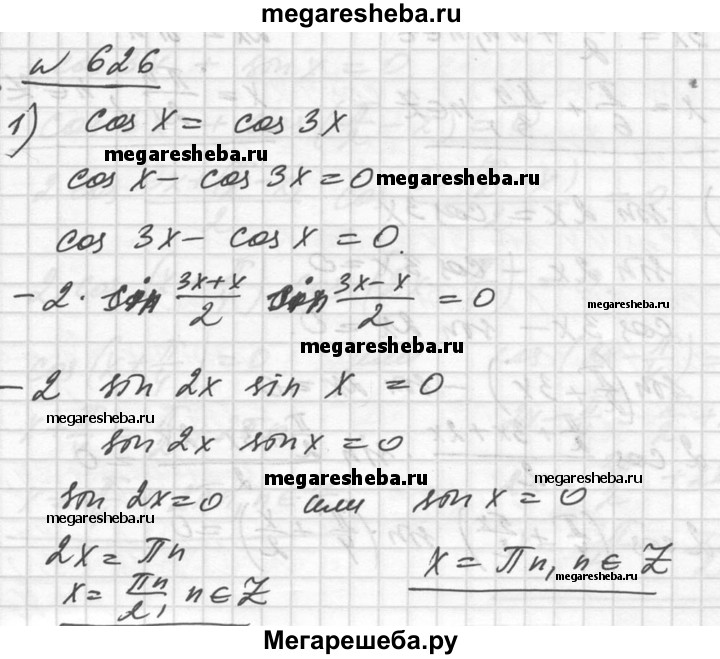 megaresheba.ru
№ 626
1) cos x = cos 3x
megaresheba.ru
cos x - cos 3x = 0 megaresheba.ru
cos 3x - cos x = 0.
-2 · sin (3x+x)/2 sin (3x-x)/2 = 0 megaresheba.ru
megaresheba.ru
-2 sin 2x sin x = 0
megaresheba.ru
sin 2x sin x = 0
megaresheba.ru megaresheba.ru
sin 2x = 0 или sin x = 0
megaresheba.ru
2x = πn x = πn, n ∈ Z
megaresheba.ru
x = πn/2, n ∈ Z
Мегарешеба.ру